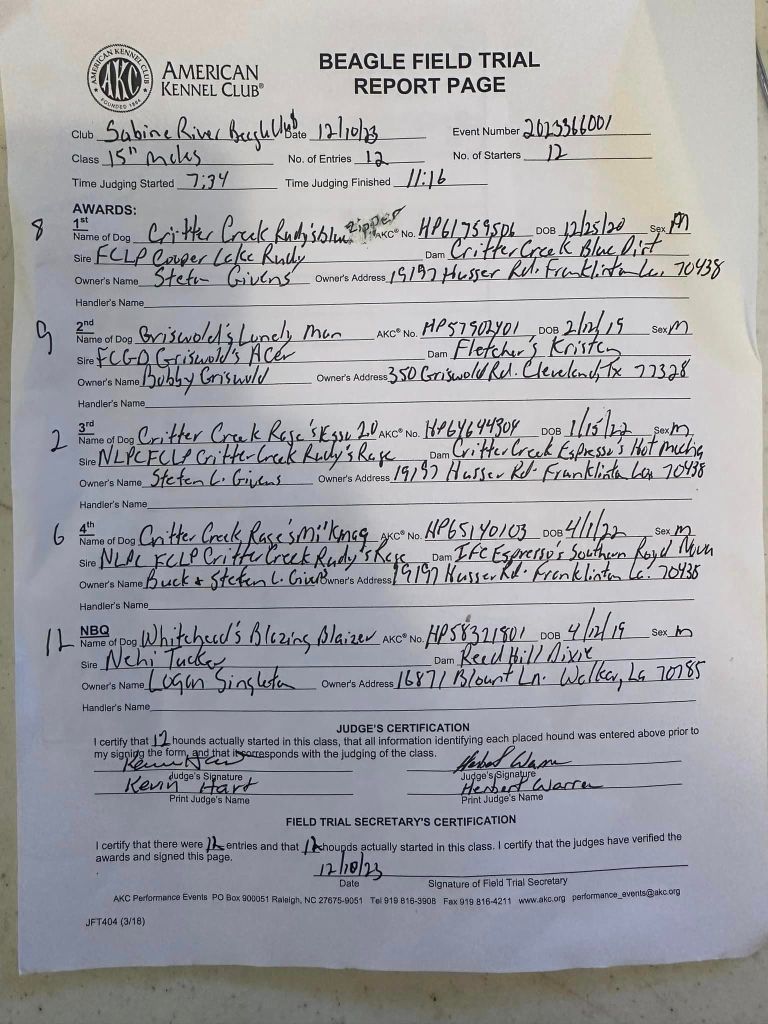 AMERICAN KENNEL CLUB
AKC
FOUNDED 1884
AMERICAN
KENNEL CLUB®
BEAGLE FIELD TRIAL
REPORT PAGE
Club Sabine River Beagle Club Date 12/10/23 Event Number 2023366001
Class 15" males No. of Entries 12 No. of Starters 12
Time Judging Started 7:34 Time Judging Finished 11:16
AWARDS:
8 1st
Name of Dog Critter Creek Rudy's Blue Zipper AKC® No. HP61759506 DOB 12/25/20 Sex M
Sire FCLP Cooper Lake Rudy Dam Critter Creek Blue Dirt
Owner's Name Stefan Givens Owner's Address 19197 Husser Rd. Franklinton La. 70438
Handler's Name
9 2nd
Name of Dog Griswold's Lonely Man AKC® No. HP57902401 DOB 2/12/19 Sex M
Sire FCGD Griswold's Acer Dam Fletcher's Kristen
Owner's Name Bobby Griswold Owner's Address 350 Griswold Rd. Cleveland, Tx 77328
Handler's Name
2 3rd
Name of Dog Critter Creek Rage's 2.0 AKC® No. HP64644304 DOB 1/15/22 Sex M
Sire NLPC FCLP Critter Creek Rudy's Rage Dam Critter Creek Espresso's Hot
Owner's Name Stefen L. Givens Owner's Address 19197 Husser Rd. Franklinton La 70438
Handler's Name
6 4th
Name of Dog Critter Creek Rage's Milkman AKC® No. HP65140103 DOB 4/1/22 Sex M
Sire NLPC FCLP Critter Creek Rudy's Rage Dam IFC Espresso's Southern Royal Nova
Owner's Name Buck & Stefen L. Givens Owner's Address 19197 Husser Rd. Franklinton La. 70438
Handler's Name
12 NBQ
Name of Dog Whitehead's Blazing Blaizer AKC® No. HP58321801 DOB 4/12/19 Sex M
Sire Nehi Tucker Dam Reed Hill Dixie
Owner's Name Logan Singleton Owner's Address 16871 Blount Ln. Walker, La 70785
Handler's Name
JUDGE'S CERTIFICATION
I certify that 12 hounds actually started in this class, that all information identifying each placed hound was entered above prior to
my signing the form, and that it corresponds with the judging of the class.
Kevin Hart Herbert Warren
Judge's Signature Judge's Signature
Kevin Hart Herbert Warren
Print Judge's Name Print Judge's Name
FIELD TRIAL SECRETARY'S CERTIFICATION
I certify that there were 12 entries and that 12 hounds actually started in this class. I certify that the judges have verified the
awards and signed this page.
12/10/23
Date Signature of Field Trial Secretary
AKC Performance Events PO Box 900051 Raleigh, NC 27675-9051 Tel 919 816-3908 Fax 919 816-4211 www.akc.org performance_events@akc.org
JFT404 (3/18)